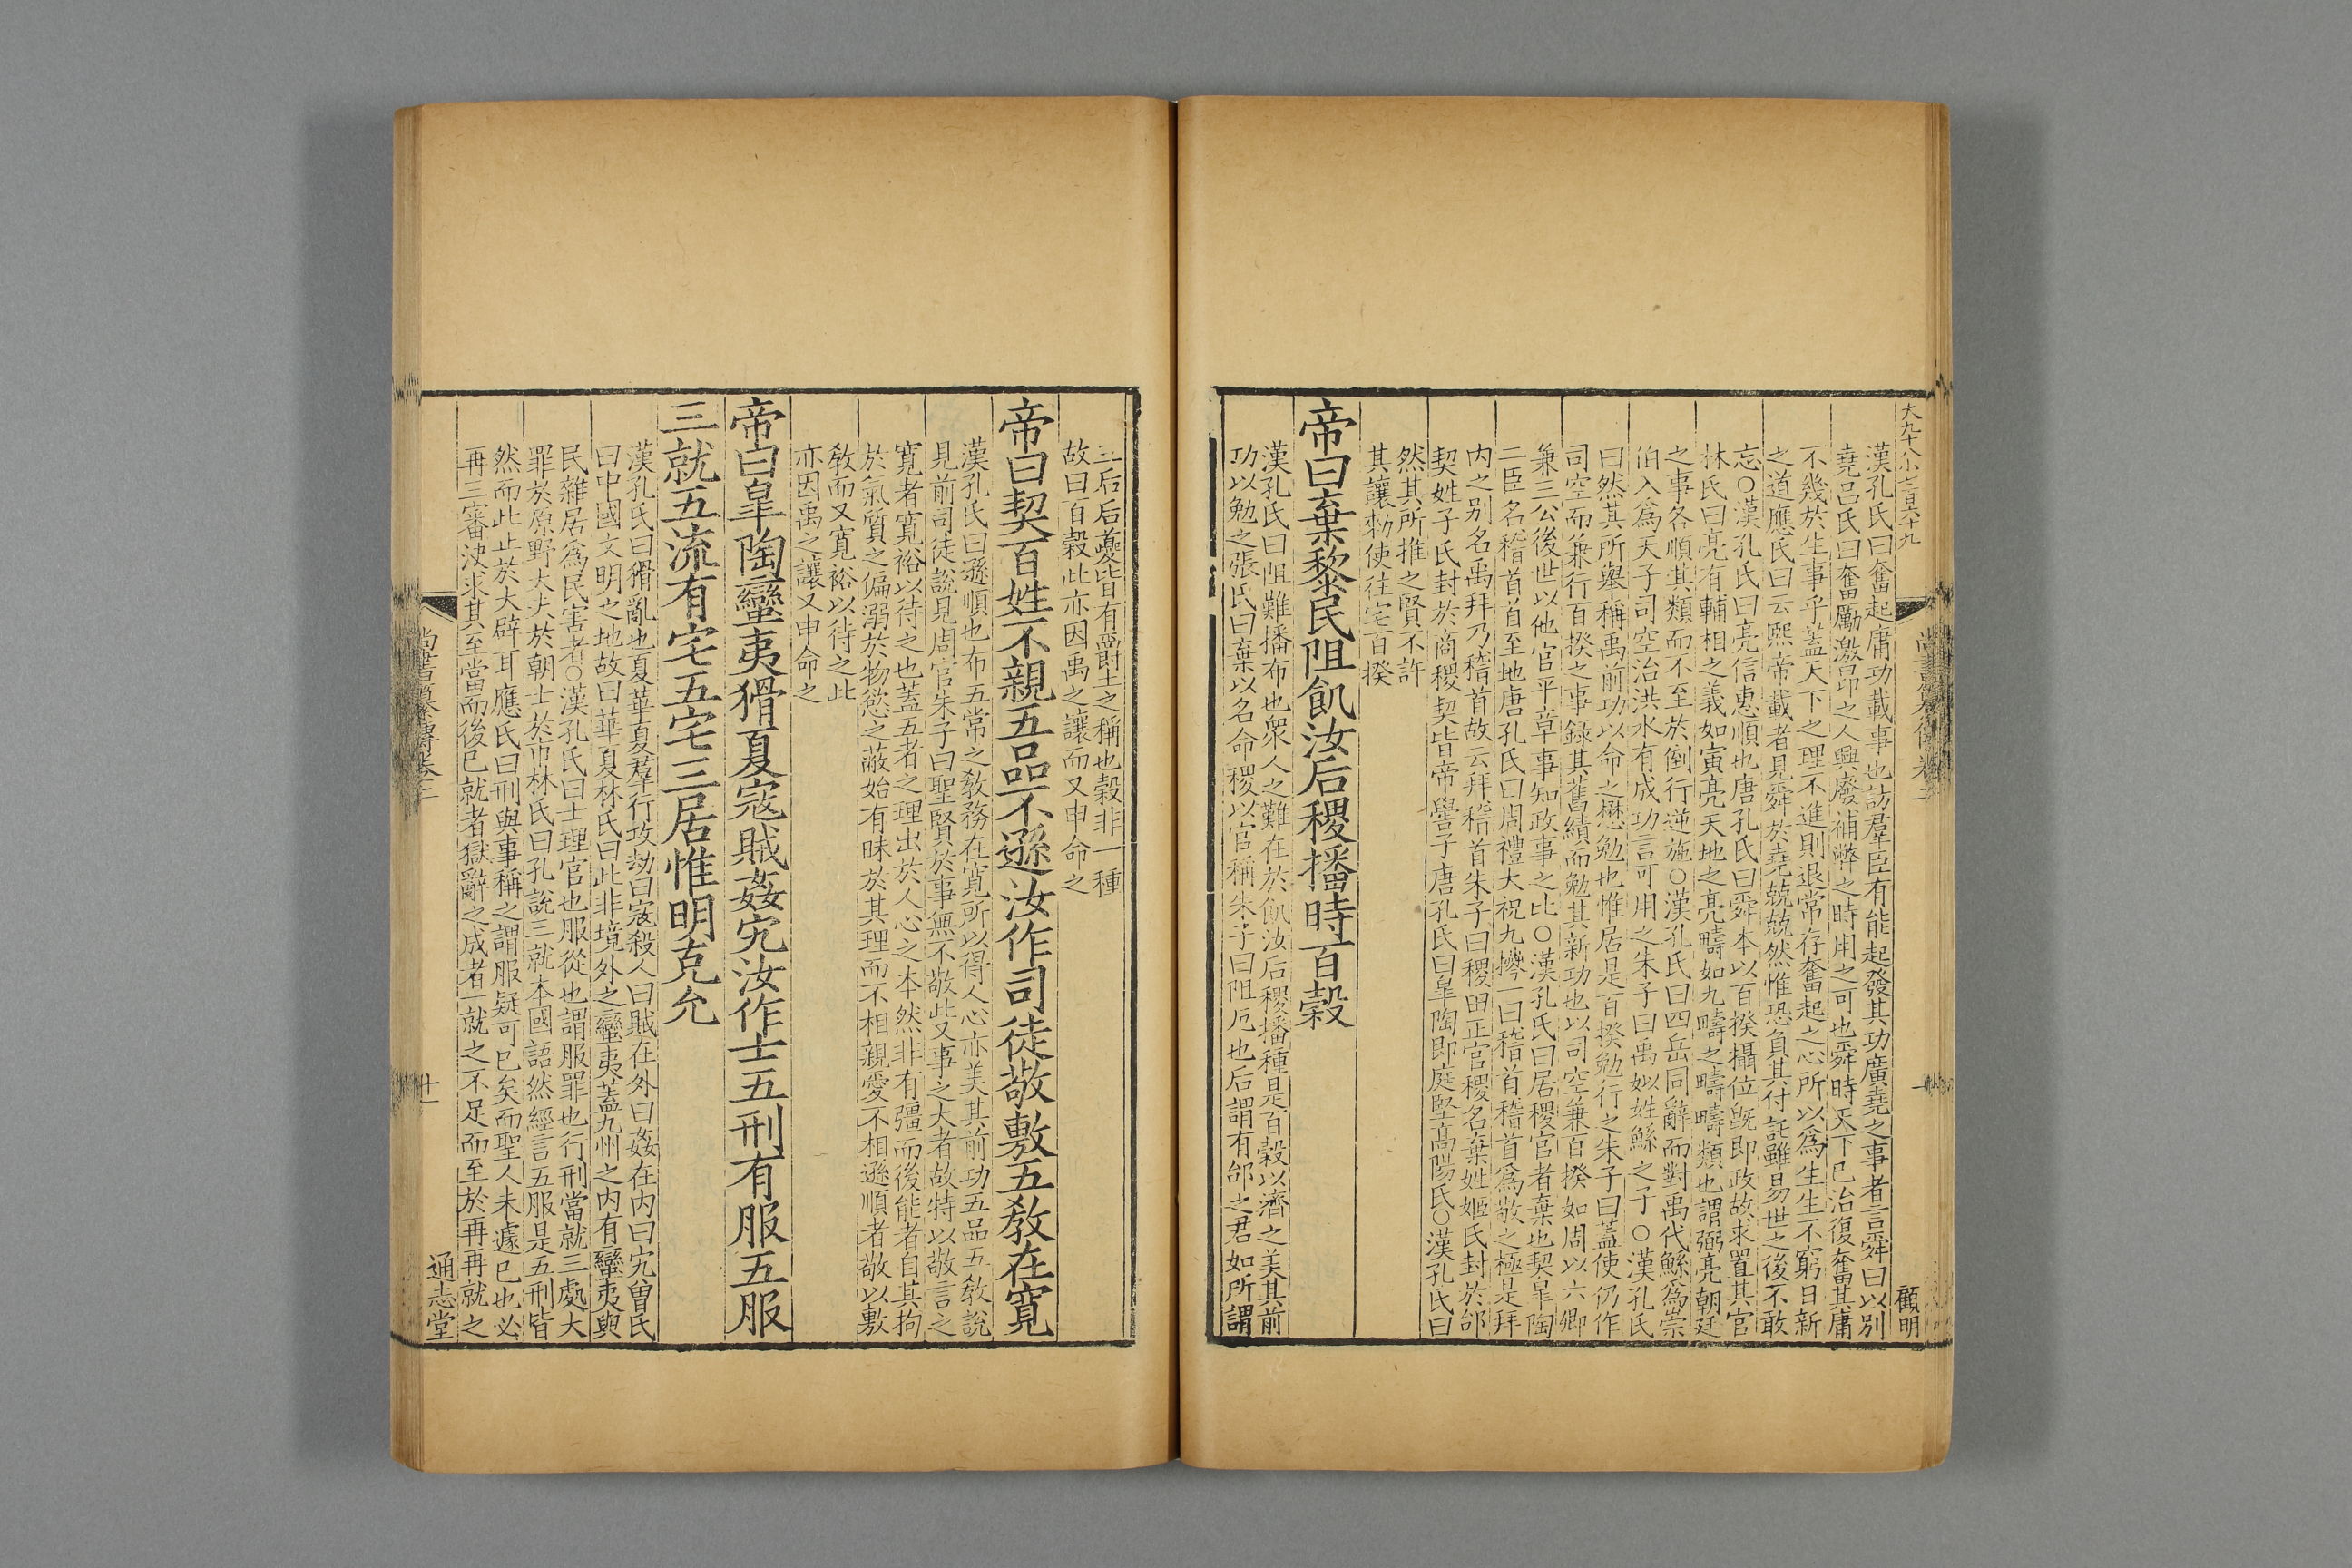 大九十八小七百六十九
顧明
漢孔氏曰奮起庸功載事也訪羣臣有能起發其功廣堯之事者言舜曰以别
堯呂氏曰奮厲激昂之人興廢補弊之時用之可也舜時天下已治復奮其庸
不幾於生事乎蓋天下之理不進則退常存奮起之心所以爲生生不窮日新
之道應氏曰云熙帝載者見舜於堯兢兢然惟恐負其付託雖易世之後不敢
忘○漢孔氏曰亮信惠順也唐孔氏曰舜本以百揆攝位旣即政故求置其官
林氏曰亮有輔相之義如寅亮天地之亮疇如九疇之疇疇類也謂弼亮朝廷
之事各順其類而不至於倒行逆施○漢孔氏曰四岳同辭而對禹代鯀爲崇
伯入爲天子司空治洪水有成功言可用之朱子曰禹姒姓鯀之子○漢孔氏
曰然其所舉稱禹前功以命之懋勉也惟居是百揆勉行之朱子曰蓋使仍作
司空而兼行百揆之事録其舊績而勉其新功也以司空兼百揆如周以六卿
兼三公後世以他官平章事知政事之比○漢孔氏曰居稷官者棄也契皐陶
二臣名稽首首至地唐孔氏曰周禮大祝九㩌一曰稽首稽首爲敬之極是拜
内之别名禹拜乃稽首故云拜稽首朱子曰稷田正官稷名棄姓姬氏封於邰
契姓子氏封於商稷契皆帝嚳子唐孔氏曰皐陶即庭堅高陽氏○漢孔氏曰
然其所推之賢不許
其讓勑使往宅百揆
帝曰棄黎民阻飢汝后稷播時百穀
漢孔氏曰阻難播布也衆人之難在於飢汝后稷播種是百穀以濟之美其前
功以勉之張氏曰棄以名命稷以官稱朱子曰阻厄也后謂有邰之君如所謂
三后后夔皆有爵土之稱也穀非一種
故曰百穀此亦因禹之讓而又申命之
帝曰契百姓不親五品不遜汝作司徒敬敷五敎在寬
漢孔氏曰遜順也布五常之敎務在寛所以得人心亦美其前功五品五敎說
見前司徒說見周官朱子曰聖賢於事無不敬此又事之大者故特以敬言之
寛者寛裕以待之也蓋五者之理出於人心之本然非有彊而後能者自其拘
於氣質之偏溺於物慾之蔽始有昧於其理而不相親愛不相遜順者敬以敷
敎而又寛裕以待之此
亦因禹之讓又申命之
帝曰皐陶蠻夷猾夏寇賊姦宄汝作士五刑有服五服
三就五流有宅五宅三居惟明克允
漢孔氏曰猾亂也夏華夏羣行攻劫曰寇殺人曰賊在外曰姦在内曰宄曾氏
曰中國文明之地故曰華夏林氏曰此非境外之蠻夷蓋九州之内有蠻夷與
民雜居爲民害者○漢孔氏曰士理官也服從也謂服罪也行刑當就三處大
罪於原野大夫於朝士於市林氏曰孔說三就本國語然經言五服是五刑皆
然而此止於大辟耳應氏曰刑與事稱之謂服疑可已矣而聖人未遽已也必
再三審決求其至當而後已就者獄辭之成者一就之不足而至於再再就之
尚書纂傳卷二
十一
通志堂